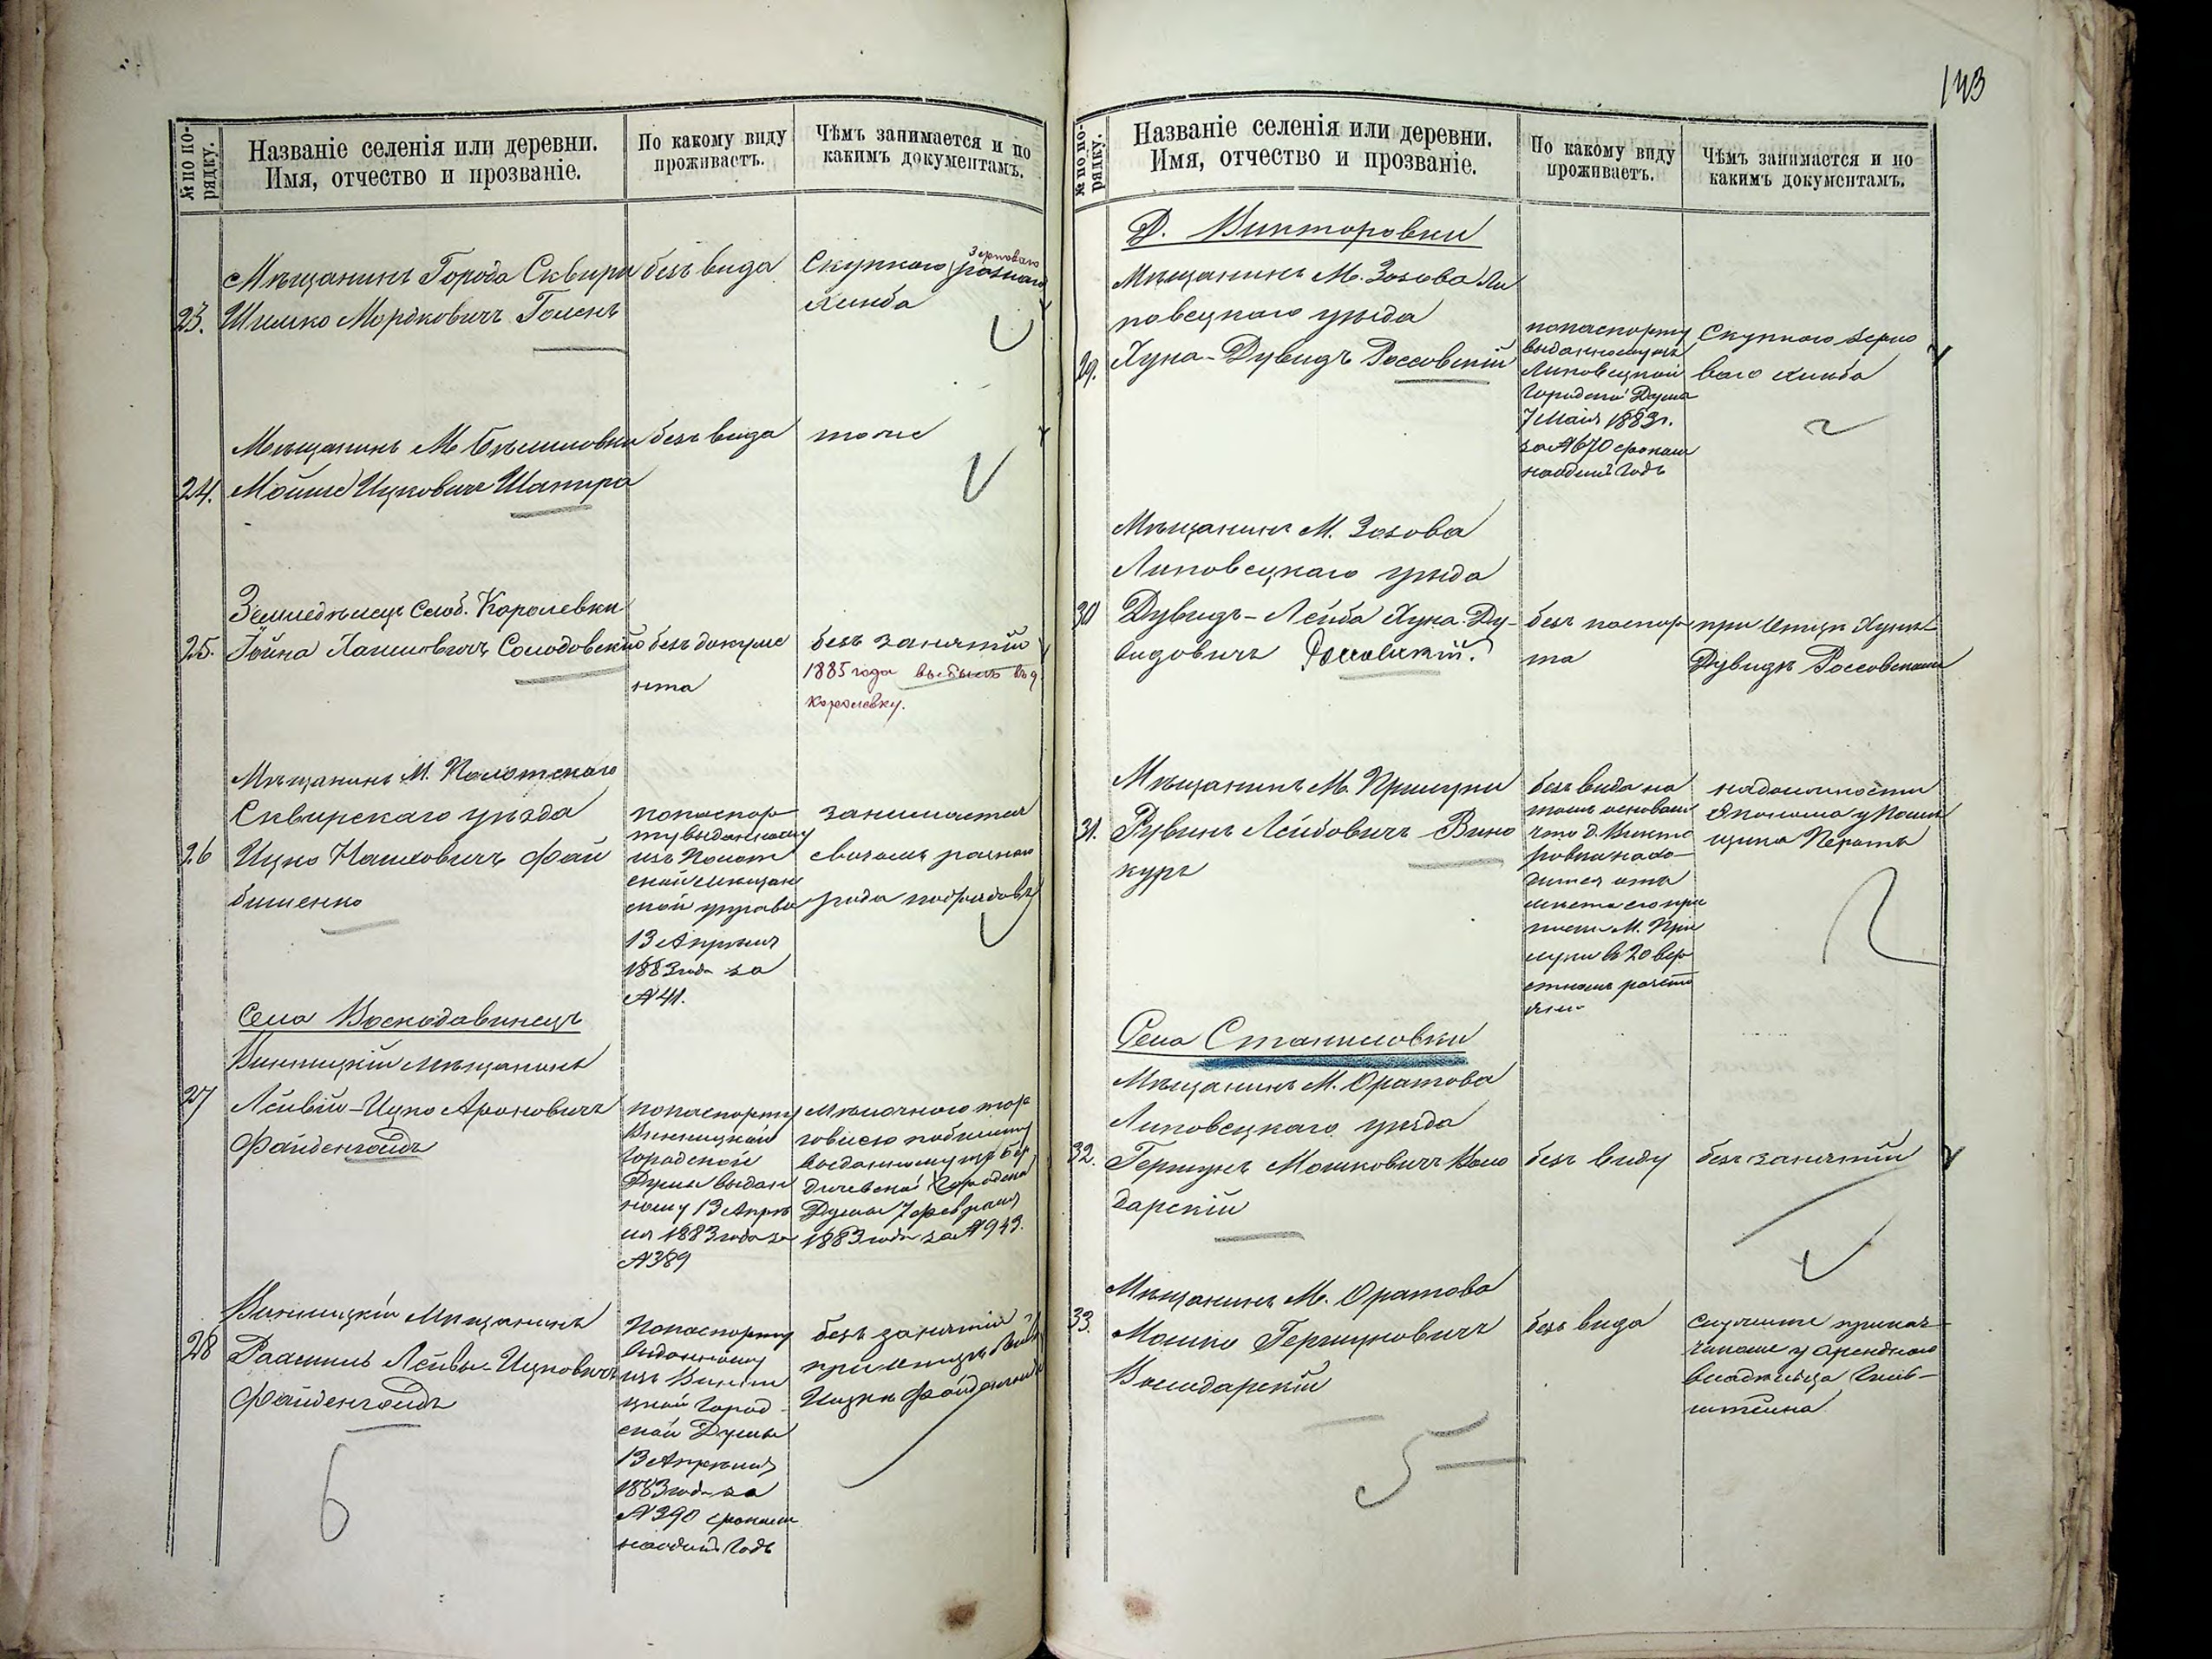 143
№ по по-
рядку.
Названіе селенія или деревни.
Имя, отчество и прозваніе.
По какому виду
проживаетъ.
Чѣмъ занимается и по
какимъ документамъ.
23.
Мѣщанинъ Города Сквиры
Шимко Мордковичъ
безъ вида
Скупкою разнаго
Зерноваго
хлѣба
24.
Мѣщанинъ М.
Мошко Ицковичъ Шапиро
безъ вида
тоже
25.
Земледѣлецъ Слоб. Королевки
Іойна Хаимовичъ Солодовскій
безъ докуме
нта
безъ занятій
1885 года выбылъ въ д
Королевку.
26
Мѣщанинъ М. Пологскаго
Сквирскаго уѣзда
Ицко Нахмовичъ Фай
бишенко
по паспор
ту выданному
изъ Полог
ской мѣщан
ской управы
13 Апрѣля
1883 года за
№ 41.
занимается
свозомъ разнаго
рода подрядовъ
Села Воскодавинецъ
27
Винницкій мѣщанинъ
Лейвій-Ицко Ароновичъ
Файденгольдъ
по паспорту
Винницкой
Городской
Думы выдан
ному 13 Апрѣ
ля 1883 года за
№ 389
мѣлочною тор
говлею по билету
выданному изъ Бер
дичевской Городской
Думы 7 Февраля
1883 года за № 943.
28
Винницкій Мѣщанинъ
Лейвы-Ицковичъ
Файденгольдъ
По паспорту
выданному
изъ Винни
цкой Город-
ской Думы
13 Апрѣля
1883 года за
№ 390 срокомъ
на одинъ годъ
безъ занятій
при отцѣ
Ицкѣ Файденгольдѣ
6
№ по по-
рядку.
Названіе селенія или деревни.
Имя, отчество и прозваніе.
По какому виду
проживаетъ.
Чѣмъ занимается и по
какимъ документамъ.
Д. Викторовки
29.
Мѣщанинъ М. Зозова Ли
повецкаго уѣзда
Хуна-Дувидъ Россовскій
по паспорту
выданному изъ
Липовецкой
Городской Думы
7 Мая 1883 г.
за № 670 срокомъ
на одинъ годъ
Скупкою зерно
ваго хлѣба
30
Мѣщанинъ М. Зозова
Липовецкаго уѣзда
Дувидъ-Лейба Хуна-Ду-
видовичъ Россовскій.
безъ паспор
та
при отцѣ Хунѣ-
Дувидѣ Россовскомъ
31.
Мѣщанинъ М. Прилуки
Рувинъ Лейбовичъ Вино
куръ
безъ вида на
томъ основаніи
что д. Викто
ровка нахо-
дится отъ
мѣста его при
писки М. При
луки въ 20 вер
стномъ разсто
яніи
на должности
Эконома у Помѣ
щика
Села Станиловки
32.
Мѣщанинъ М. Оратова
Липовецкаго уѣзда
Гершунъ Мошковичъ Воло
дарскій
безъ виду
безъ занятій
33.
Мѣщанинъ М. Оратова
Мошко Гершуновичъ
Володарскій
безъ вида
служитъ прикаж-
чикомъ у арендного
владѣльца
штейна
5